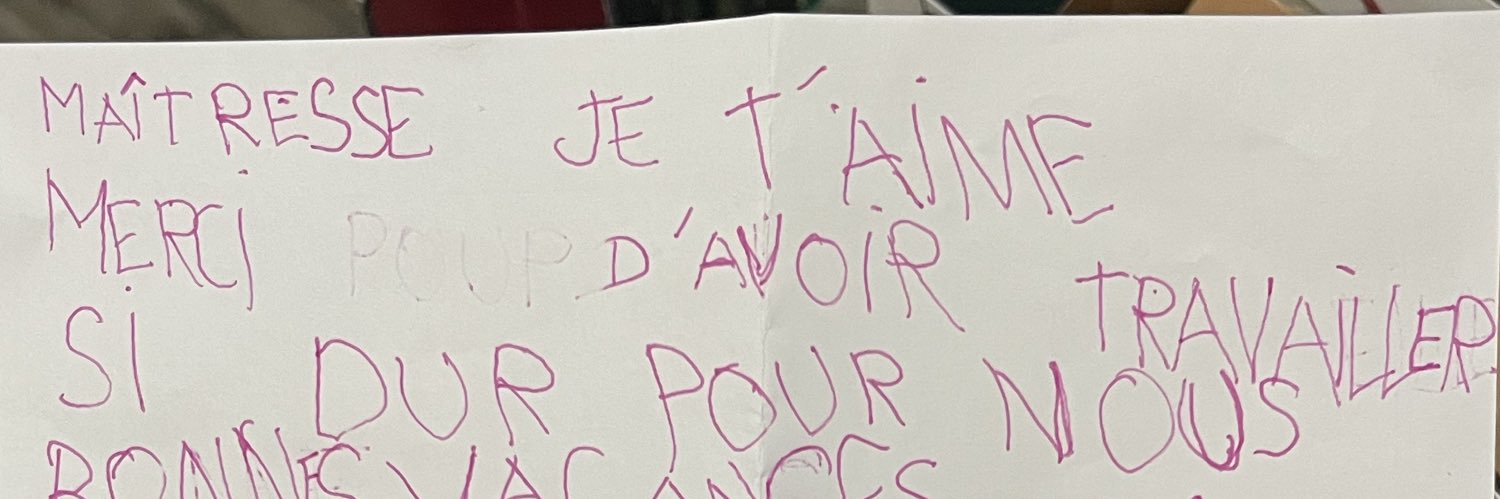 MAÎTRESSE JE T'AIME
MERCI POUR D'AVOIR TRAVAILLER
SI DUR POUR NOUS
BONNES VACANCES